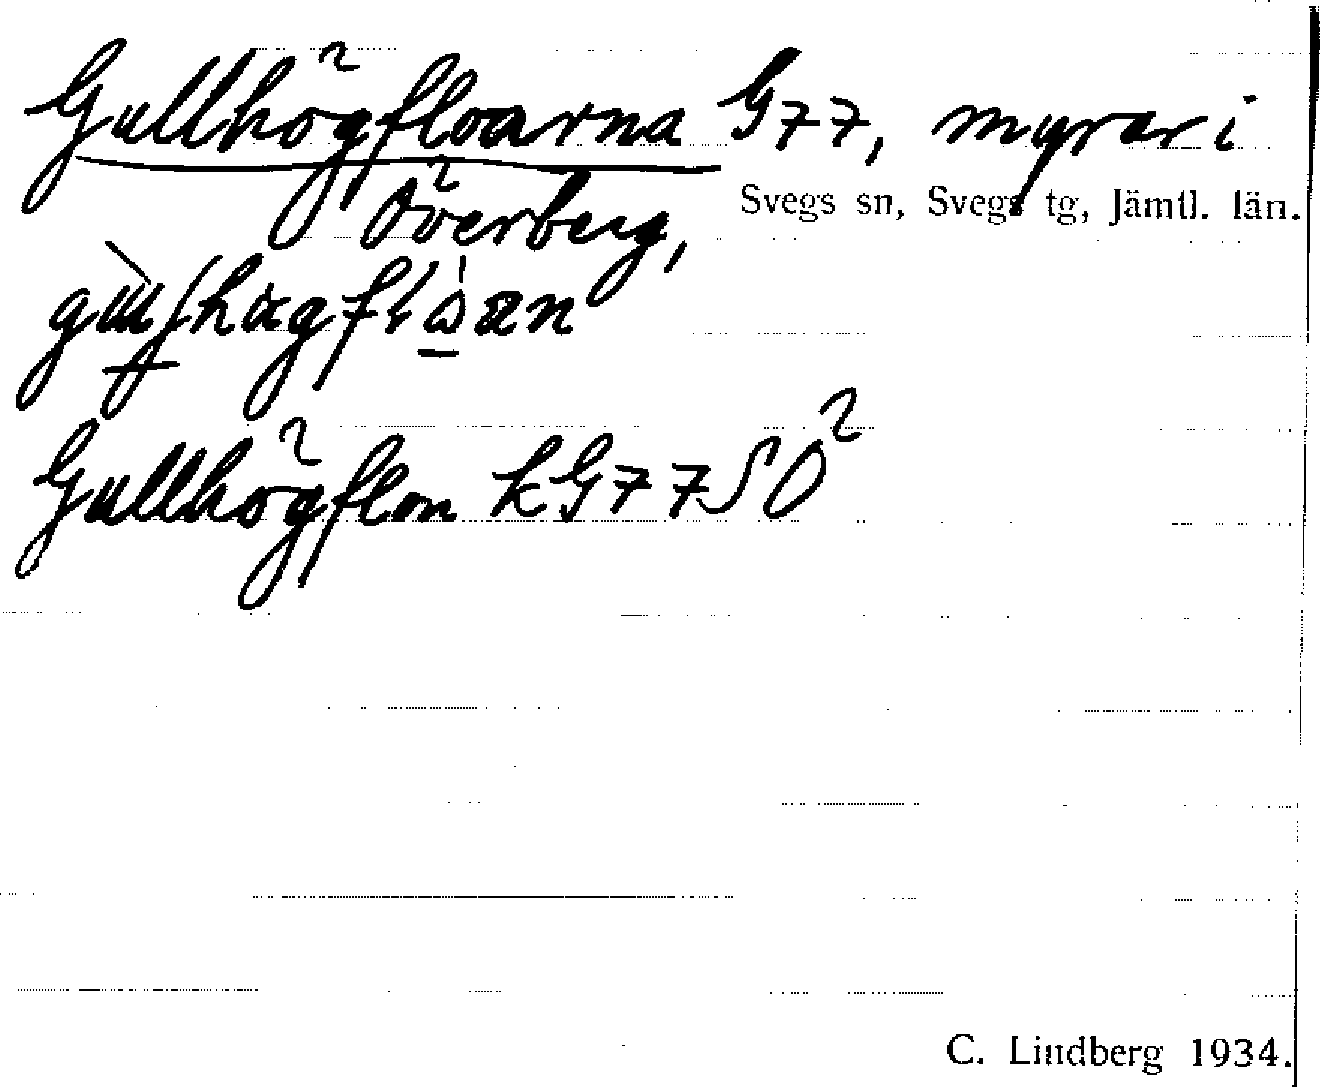 Gullhögfloarna G77, myrar i
Svegs sn, Svegs tg, Jämtl. län.
Överberg,
Gullhögflon kG77SO
C. Lindberg 1934.